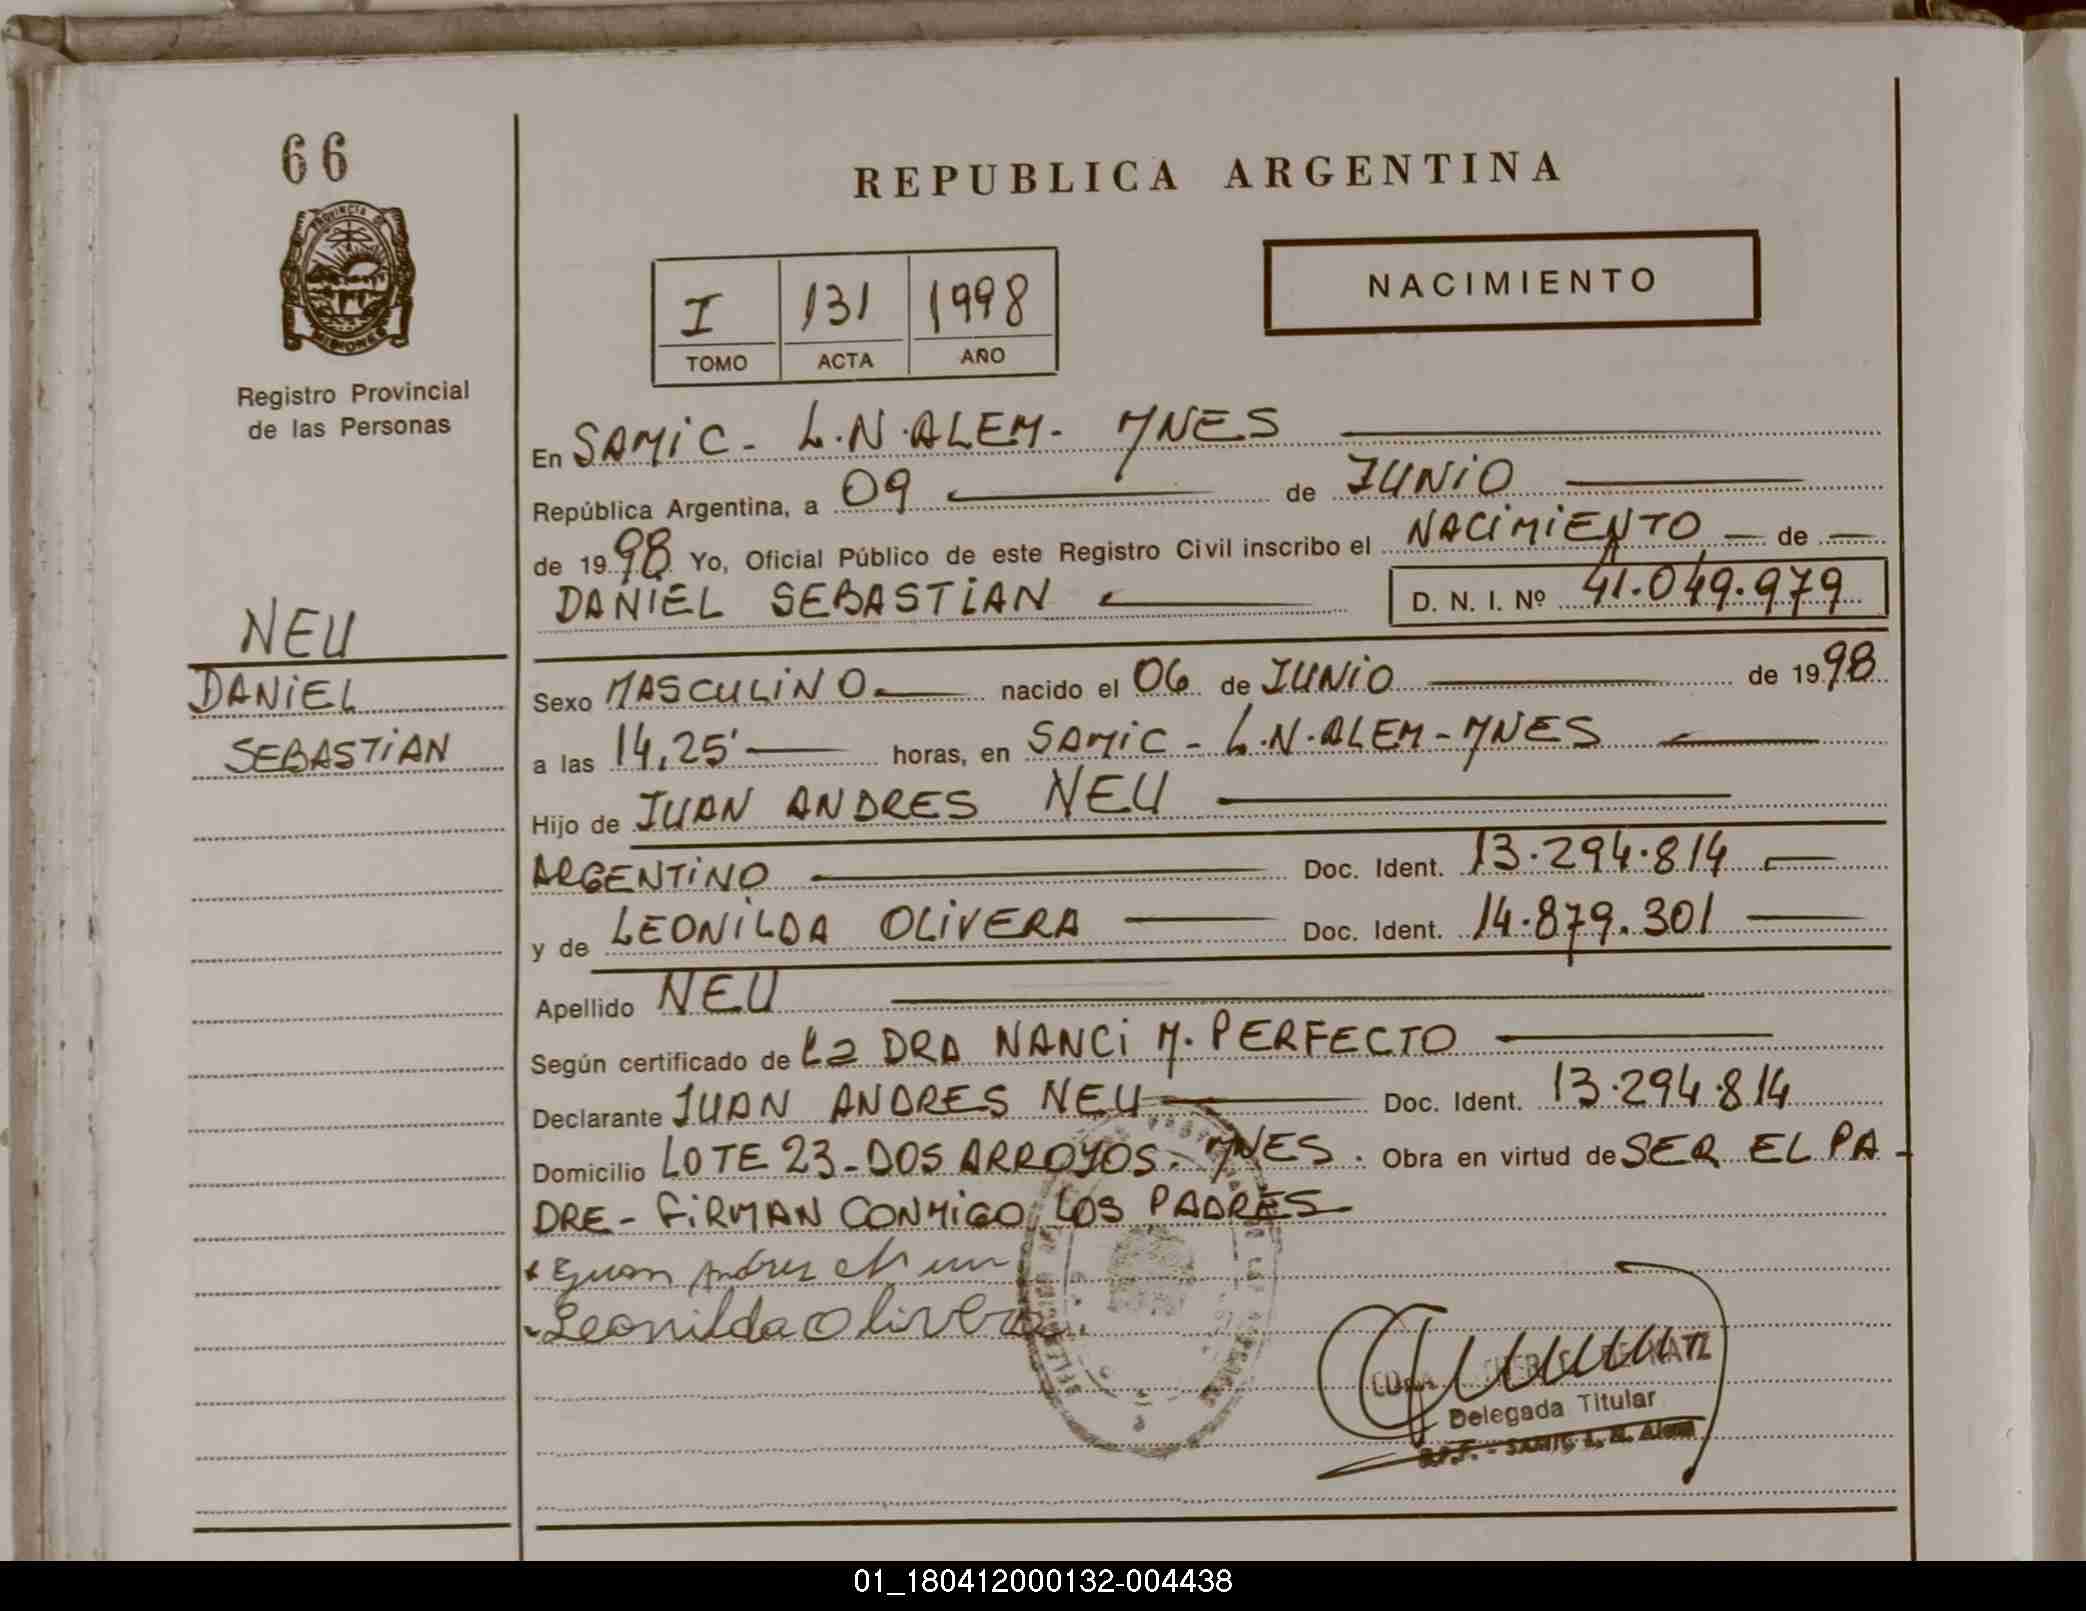 66
REPUBLICA ARGENTINA
NACIMIENTO
I 131 1998
TOMO ACTA AÑO
PROVINCIA DE
MISIONES
Registro Provincial
de las Personas
En SAMIC - L.N.ALEM - MNES
República Argentina, a 09 de JUNIO
de 1998 Yo, Oficial Público de este Registro Civil inscribo el NACIMIENTO — de —
DANIEL SEBASTIAN D. N. I. Nº 41.049.979
NEU
DANIEL
SEBASTIAN
Sexo MASCULINO nacido el 06 de JUNIO de 1998
a las 14,25' horas, en SAMIC - L.N.ALEM - MNES
Hijo de JUAN ANDRES NEU
ARGENTINO Doc. Ident. 13.294.814
y de LEONILDA OLIVERA Doc. Ident. 14.879.301
Apellido NEU
Según certificado de La DRA NANCI M. PERFECTO
Declarante JUAN ANDRES NEU Doc. Ident. 13.294.814
Domicilio LOTE 23 - DOS ARROYOS - MNES. Obra en virtud de SER EL PA-
DRE - FIRMAN CONMIGO LOS PADRES
Juan Andres
Leonilda Olivera
Delegada Titular
R.P.P. - SAMIC L. N. Alem
01_180412000132-004438